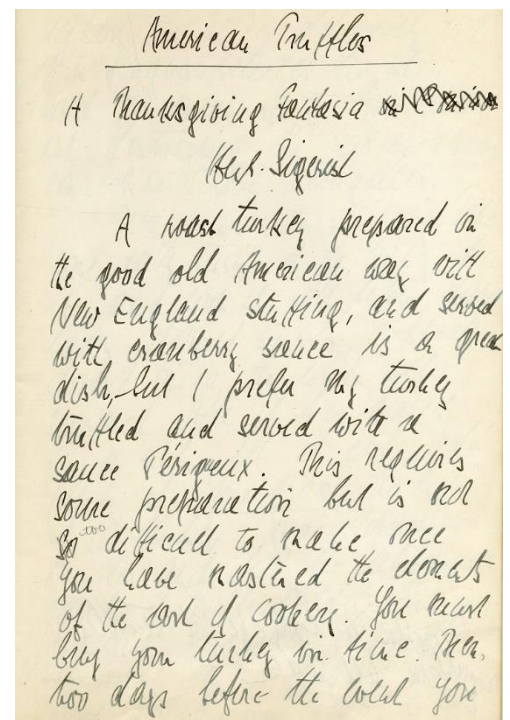 American Truffles
A Thanksgiving Fantasia
Sigerist
A roast turkey prepared in
the good old American way with
New England stuffing, and served
with cranberry sauce is a great
dish, but I prefer my turkey
truffled and served with a
sauce Périgueux. This requires
some preparation but is not
so too difficult to make once
you have mastered the elements
of the art of cookery. You must
buy your turkey in time. Then,
two days before the event you